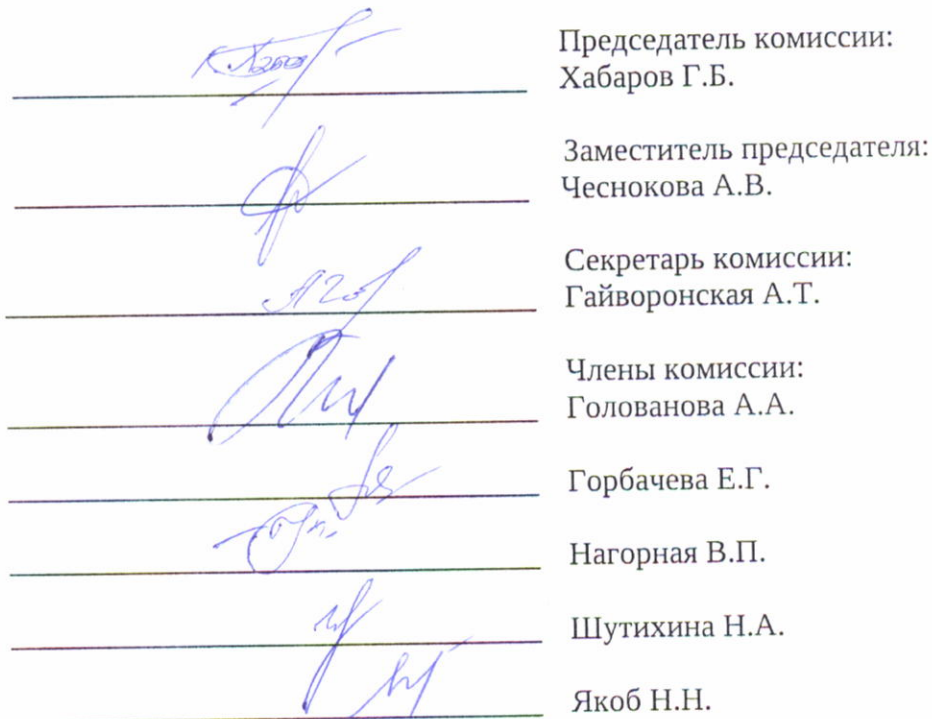 Председатель комиссии:
Хабаров Г.Б.
Заместитель председателя:
Чеснокова А.В.
Секретарь комиссии:
Гайворонская А.Т.
Члены комиссии:
Голованова А.А.
Горбачева Е.Г.
Нагорная В.П.
Шутихина Н.А.
Якоб Н.Н.